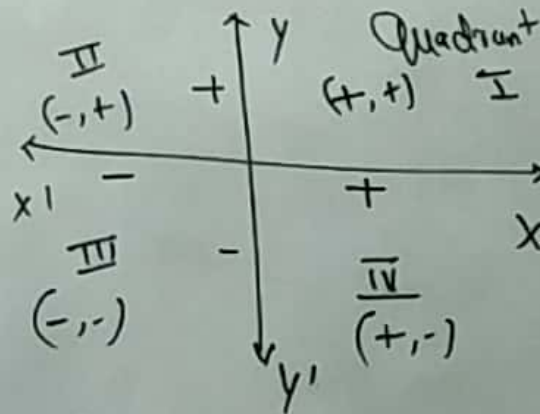 Y Quadrant
II + (+,+) I
(-,+)
X' - +
X
III - IV
(-,-) (+,-)
Y'